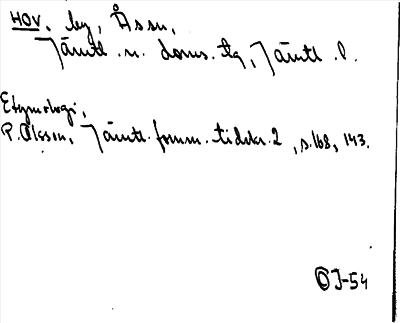 HOV, by, Ås sn,
Jämtl. n. doms. tg, Jämtl. l.
Etymologi,
P. Olsson, Jämtl. fornm. tidskr. 2, s. 168, 143.
OJ-54